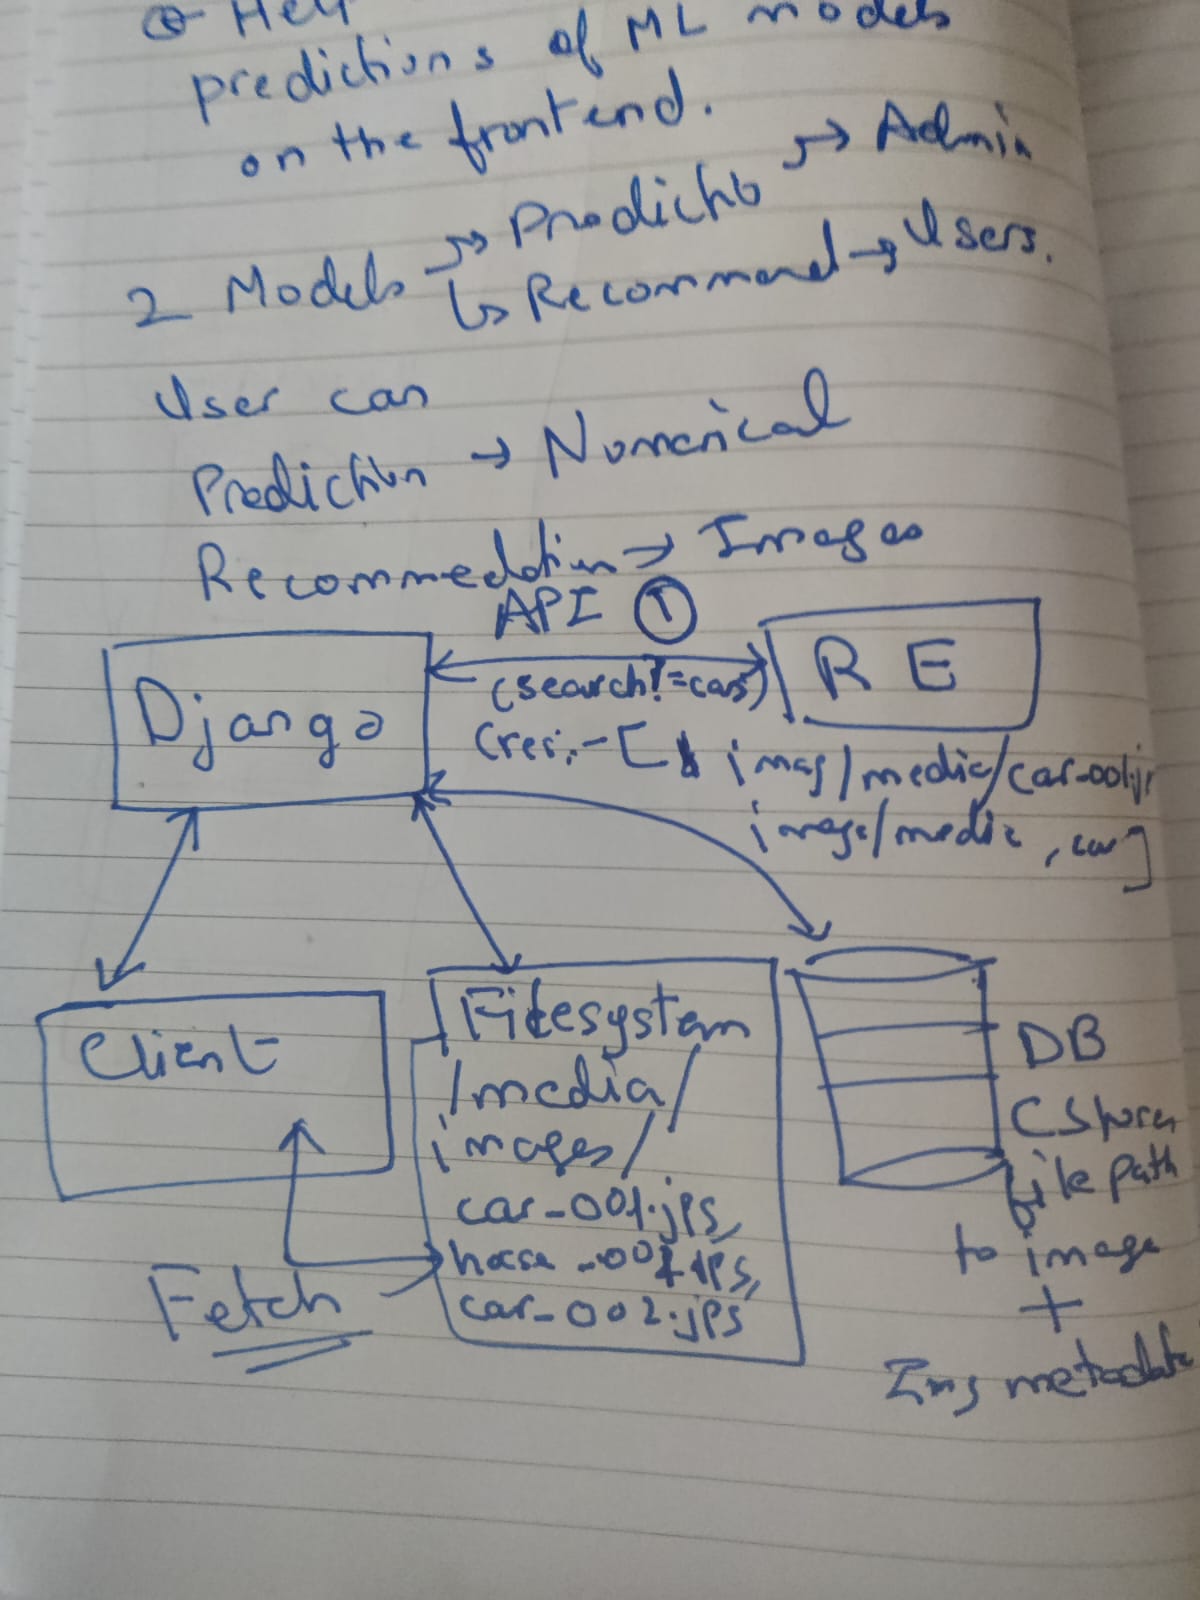 predictions of ML models
on the frontend.
2 Models → Predict → Admin
↳ Recommend → Users.
User can
Prediction → Numerical
Recommedation → Images
API 1
Django
(search?=cars)
RE
(res:-[ imag/media/car-001.j
image/media, car]
Client
Filesystem
/media/
images/
car-001.jpg,
horse-001.jpg,
car-002.jpg
Fetch
DB
(Stores
file path
to image
+
Img metadata